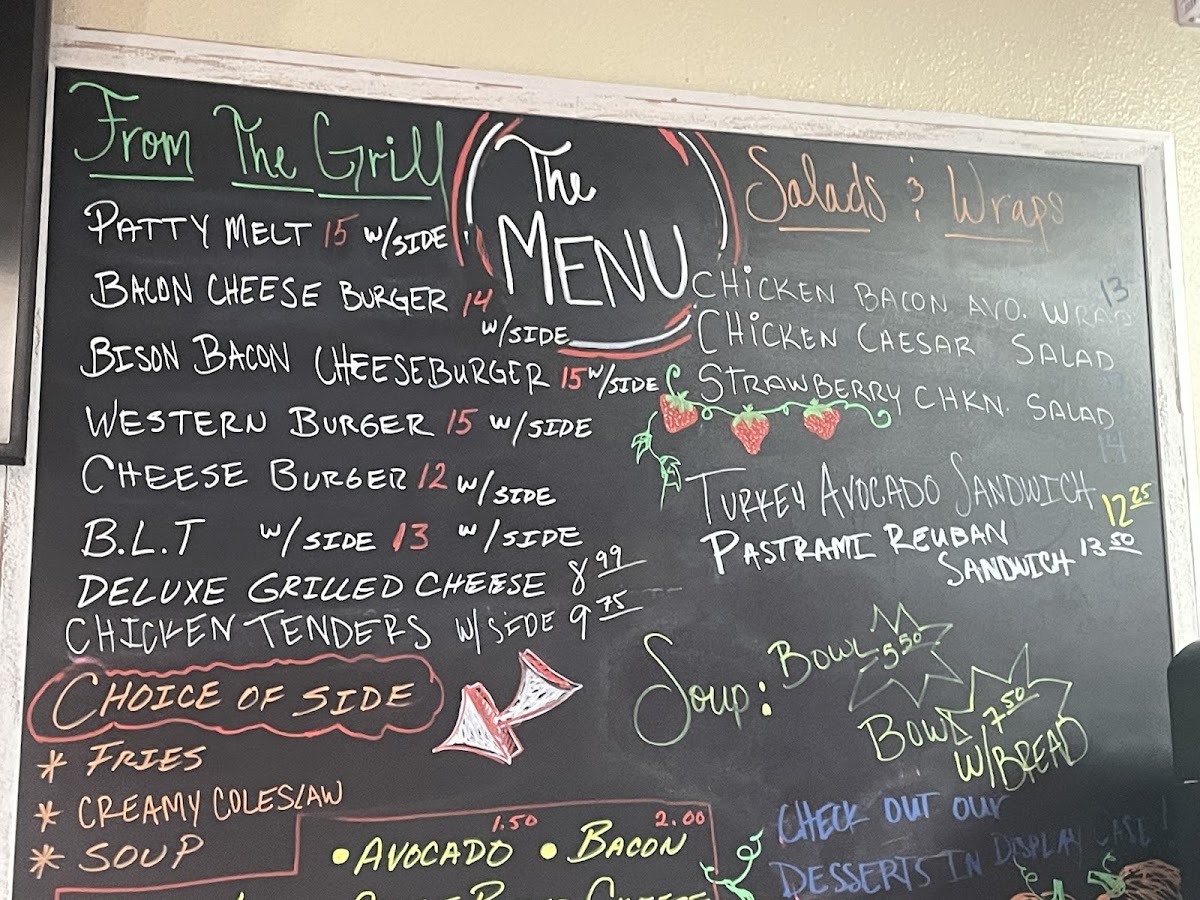 From The Grill
PATTY MELT 15 W/SIDE
BACON CHEESE BURGER 14
W/SIDE
BISON BACON CHEESEBURGER 15 W/SIDE
WESTERN BURGER 15 W/SIDE
CHEESE BURGER 12 W/SIDE
B.L.T W/SIDE 13 W/SIDE
DELUXE GRILLED CHEESE 8 99
CHICKEN TENDERS W/SIDE 9 75
CHOICE OF SIDE
* FRIES
* CREAMY COLESLAW
* SOUP
1.50 2.00
• AVOCADO • BACON
CHEESE
The
MENU
Salads & Wraps
CHICKEN BACON AVO. WRAP 13
CHICKEN CAESAR SALAD
STRAWBERRY CHKN. SALAD
14
TURKEY AVOCADO SANDWICH 12 25
PASTRAMI REUBAN
SANDWICH 13 50
Soup: BOWL 5.50
BOWL 7.50
W/BREAD
CHECK OUT OUR
DESSERTS IN DISPLAY CASE!